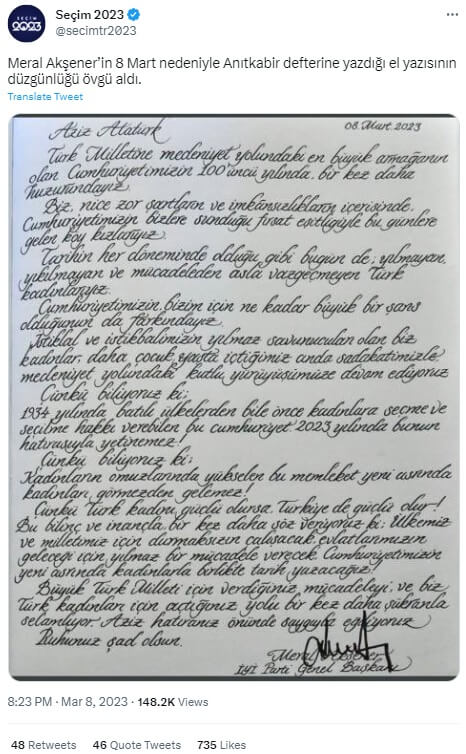 SEÇİM
2023
Seçim 2023
@secimtr2023
Meral Akşener’in 8 Mart nedeniyle Anıtkabir defterine yazdığı el yazısının
düzgünlüğü övgü aldı.
Translate Tweet
Aziz Atatürk
08. Mart. 2023
Türk Milletine medeniyet yolundaki en büyük armağanın
olan Cumhuriyetimizin 100'üncü yılında, bir kez daha
huzurundayız.
Biz, nice zor şartların ve imkânsızlıkların içerisinde,
Cumhuriyetimizin bizlere sunduğu fırsat eşitliğiyle bu günlere
gelen köy kızlarıyız.
Tarihin her döneminde olduğu gibi bugün de; yılmayan,
yıkılmayan ve mücadeleden asla vazgeçmeyen Türk
kadınlarıyız.
Cumhuriyetimizin, bizim için ne kadar büyük bir şans
olduğunun da farkındayız.
İstiklal ve istikbalimizin yılmaz savunucuları olan biz
kadınlar, daha çocuk yaşta içtiğimiz anda sadakatimizle
medeniyet yolundaki kutlu yürüyüşümüze devam ediyoruz
Çünkü biliyoruz ki;
1934 yılında, batılı ülkelerden bile önce kadınlara seçme ve
seçilme hakkı verebilen bu cumhuriyet 2023 yılında bunun
hatırasıyla yetinemez!
Çünkü biliyoruz ki;
Kadınların omuzlarında yükselen bu memleket yeni asrında
kadınları, görmezden gelemez!
Çünkü Türk kadını güçlü olursa, Türkiye de güçlü olur!
Bu bilinç ve inançla, bir kez daha söz veriyoruz ki; Ülkemiz
ve milletimiz için durmaksızın çalışacak, evlatlarımızın
geleceği için, yılmaz bir mücadele verecek, Cumhuriyetimizin
yeni asrında kadınlarla birlikte tarih yazacağız!
Büyük Türk Milleti için verdiğiniz mücadeleyi, ve biz
Türk kadınları için açtığınız yolu bir kez daha şükranla
selamlıyor, Aziz hatıranız önünde saygıyla eğiliyoruz
Ruhunuz şad olsun.
Meral Akşener
İYİ Parti Genel Başkanı
8:23 PM · Mar 8, 2023 · 148.2K Views
48 Retweets 46 Quote Tweets 735 Likes